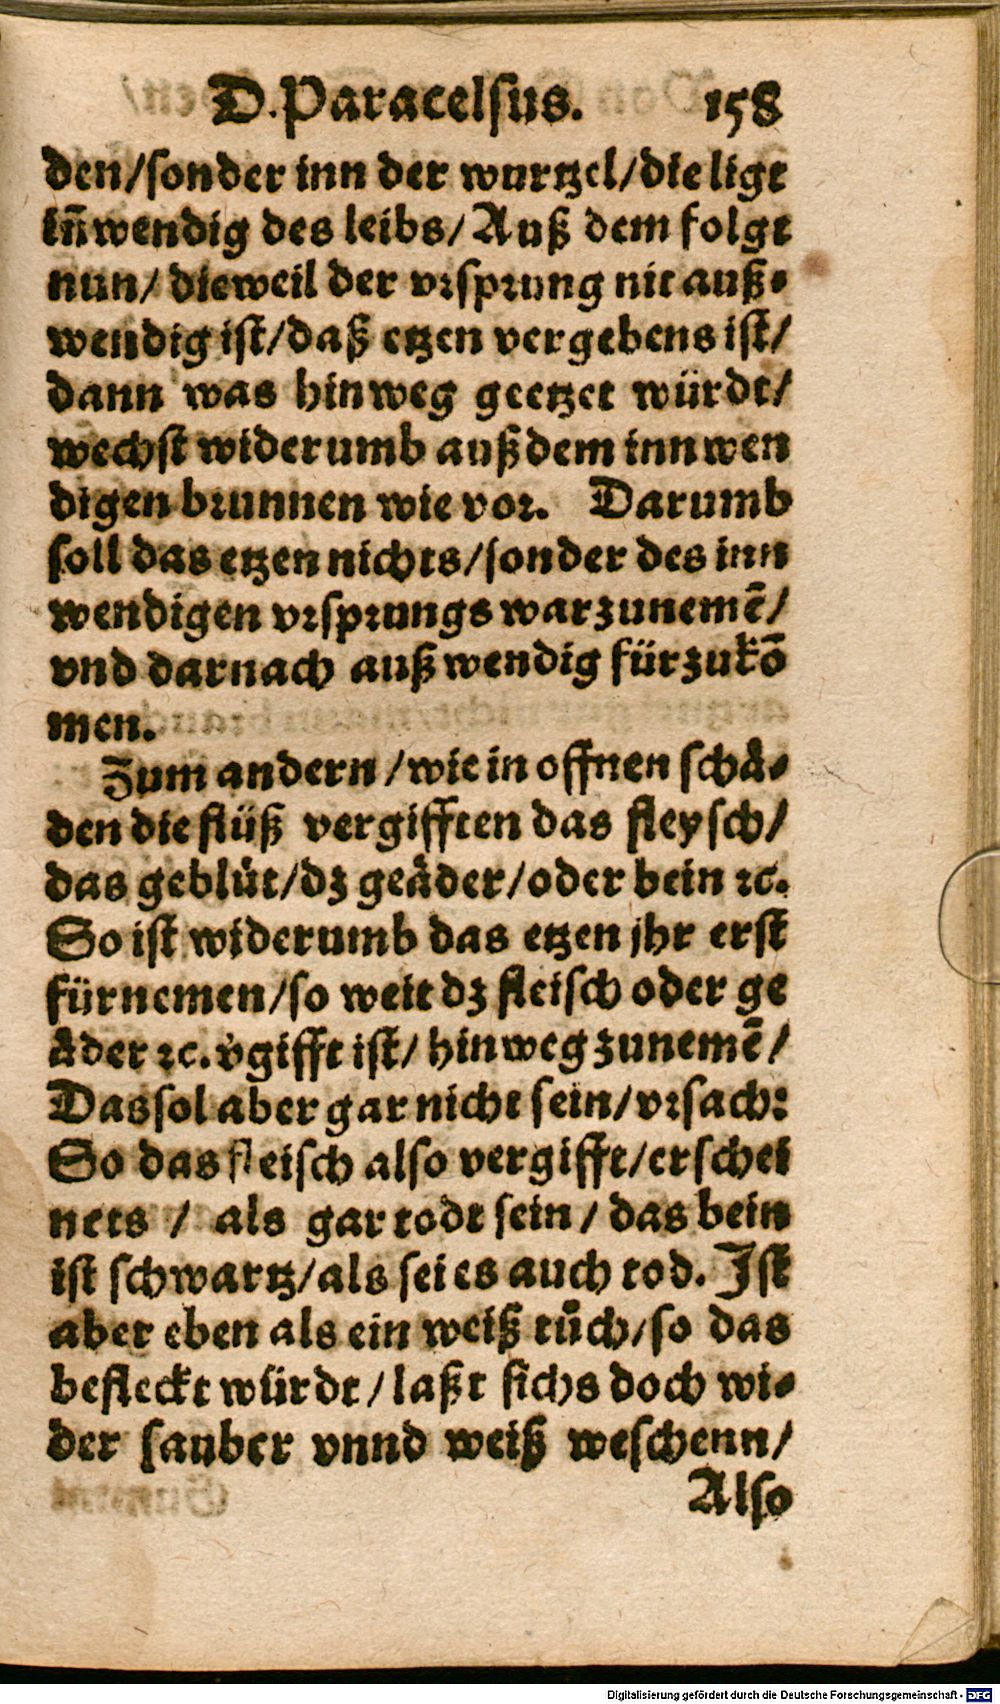 D. Paracelsus. 158
den/sonder inn der wurtzel/die ligt
iñwendig des leibs/Auß dem folgt
nun/dieweil der vrsprung nit auß-
wendig ist/daß etzen vergebens ist/
dann was hinweg geetzet würdt/
wechst widerumb auß dem innwen
digen brunnen wie vor. Darumb
soll das etzen nichts/sonder des inn
wendigen vrsprungs war zunemẽ/
vnd darnach außwendig fürzukõ
men.
Zum andern/wie in offnen schå-
den die flüß vergifften das fleysch/
das geblüt/dz geåder/oder bein ꝛc.
So ist widerumb das etzen jhr erst
fürnemen/so weit dz fleisch oder ge
åder ꝛc. v̾gifft ist/hinweg zunemẽ/
Das sol aber gar nicht sein/vrsach:
So das fleisch also vergifft/erschei
nets / als gar todt sein/das bein
ist schwartz/als sei es auch tod. Ist
aber eben als ein weiß tůch/so das
befleckt würdt/laßt sichs doch wi-
der sauber vnnd weiß weschenn/
Also
Digitalisierung gefördert durch die Deutsche Forschungsgemeinschaft - DFG